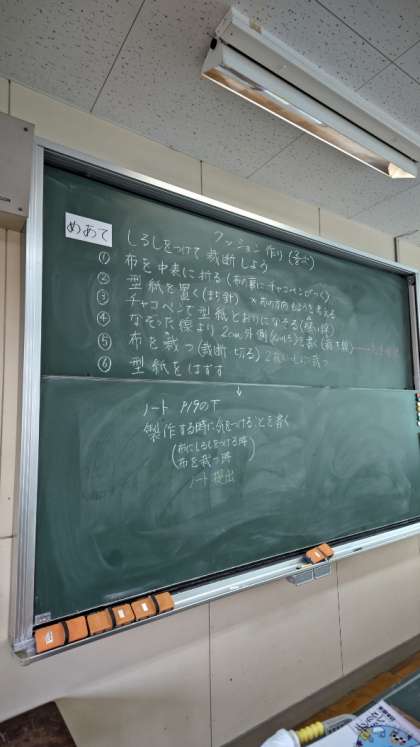 クッション作り
めあて しるしをつけて裁断しよう
① 布を中表に折る(布の裏にチャコペンでつく)
② 型紙を置く(まち針) ×布の方向、もようも考える
③ チャコペンで型紙どおりになぞる
④ なぞった線より2cm外側 を書く
⑤ 布を裁つ(裁断 切る)2枚いっしょに裁つ
⑥ 型紙をはずす
↓
ノート P19の下
製作する時に気をつけることを書く
(布にしるしをつける時
布を裁つ時)
ノート提出